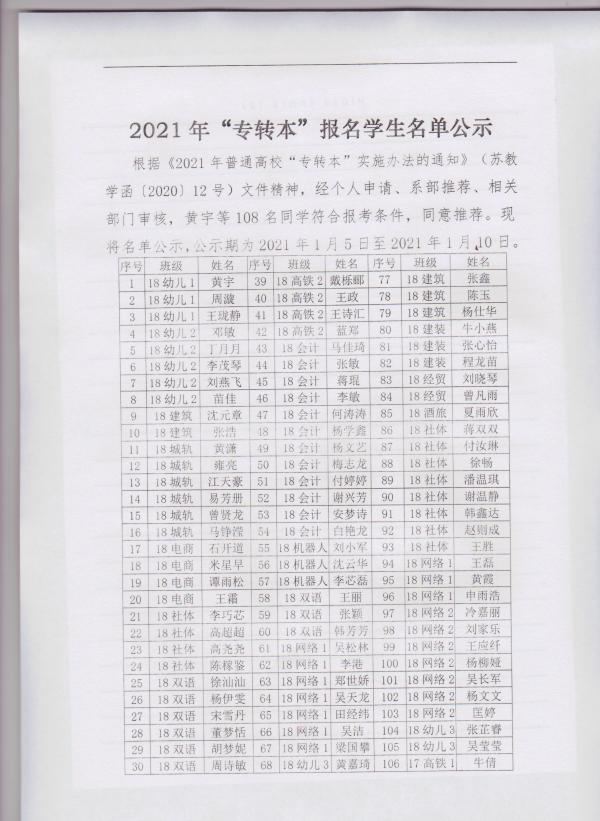 2021 年 “专转本” 报名学生名单公示
根据《2021 年普通高校“专转本”实施办法的通知》（苏教
学函〔2020〕12 号）文件精神，经个人申请、系部推荐、相关
部门审核，黄宇等 108 名同学符合报考条件，同意推荐。现
将名单公示,公示期为 2021 年 1 月 5 日至 2021 年 1 月 10 日。
序号 班级 姓名 序号 班级 姓名 序号 班级 姓名
1 18 幼儿 1 黄宇 39 18 高铁 2 戴栎郦 77 18 建筑 张鑫
2 18 幼儿 1 周漩 40 18 高铁 2 王政 78 18 建筑 陈玉
3 18 幼儿 1 王珑静 41 18 高铁 2 王诗汇 79 18 建筑 杨仕华
4 18 幼儿 2 邓敏 42 18 高铁 2 蓝郑 80 18 建装 牛小燕
5 18 幼儿 2 丁月月 43 18 会计 马佳琦 81 18 建装 张心怡
6 18 幼儿 2 李茂琴 44 18 会计 张敏 82 18 建装 程龙苗
7 18 幼儿 2 刘燕飞 45 18 会计 蒋琨 83 18 经贸 刘晓琴
8 18 幼儿 2 苗佳 46 18 会计 李敏 84 18 经贸 曾凡雨
9 18 建筑 沈元章 47 18 会计 何涛涛 85 18 酒旅 夏雨欣
10 18 建筑 张浩 48 18 会计 杨学鑫 86 18 社体 蒋双双
11 18 城轨 黄潇 49 18 会计 杨文艺 87 18 社体 付汝琳
12 18 城轨 雍亮 50 18 会计 梅志龙 88 18 社体 徐畅
13 18 城轨 江天豪 51 18 会计 付婷婷 89 18 社体 潘温琪
14 18 城轨 易芳册 52 18 会计 谢兴芳 90 18 社体 谢温静
15 18 城轨 曾贤龙 53 18 会计 安梦诗 91 18 社体 韩鑫达
16 18 城轨 马铮滢 54 18 会计 白艳龙 92 18 社体 赵则成
17 18 电商 石开道 55 18 机器人 刘小军 93 18 社体 王胜
18 18 电商 米星早 56 18 机器人 沈云华 94 18 网络 1 王磊
19 18 电商 谭雨松 57 18 机器人 李芯磊 95 18 网络 1 黄霞
20 18 电商 王霜 58 18 双语 王丽 96 18 网络 1 申雨浩
21 18 社体 李巧芯 59 18 双语 张颖 97 18 网络 2 冷嘉丽
22 18 社体 高超超 60 18 双语 韩芳芳 98 18 网络 2 刘家乐
23 18 社体 高尧尧 61 18 网络 1 吴松林 99 18 网络 2 王应纤
24 18 社体 陈稼鉴 62 18 网络 1 李港 100 18 网络 2 杨柳娅
25 18 双语 徐汕汕 63 18 网络 1 郑世娇 101 18 网络 2 吴长军
26 18 双语 杨伊雯 64 18 网络 1 吴天龙 102 18 网络 2 杨文文
27 18 双语 宋雪丹 65 18 网络 1 田经纬 103 18 网络 2 匡婷
28 18 双语 董梦恬 66 18 网络 1 吴洁 104 18 幼儿 3 张芷睿
29 18 双语 胡梦妮 67 18 网络 1 梁国攀 105 18 幼儿 3 吴莹莹
30 18 双语 周诗敏 68 18 幼儿 3 黄嘉琦 106 17 高铁 1 牛倩